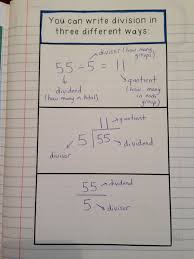 You can write division in
three different ways:
divisor (how many
groups)
55 ÷ 5 = 11
dividend
(how many in total)
quotient
(how many
in each
group)
11
quotient
5 55
dividend
divisor
55
dividend
5
divisor